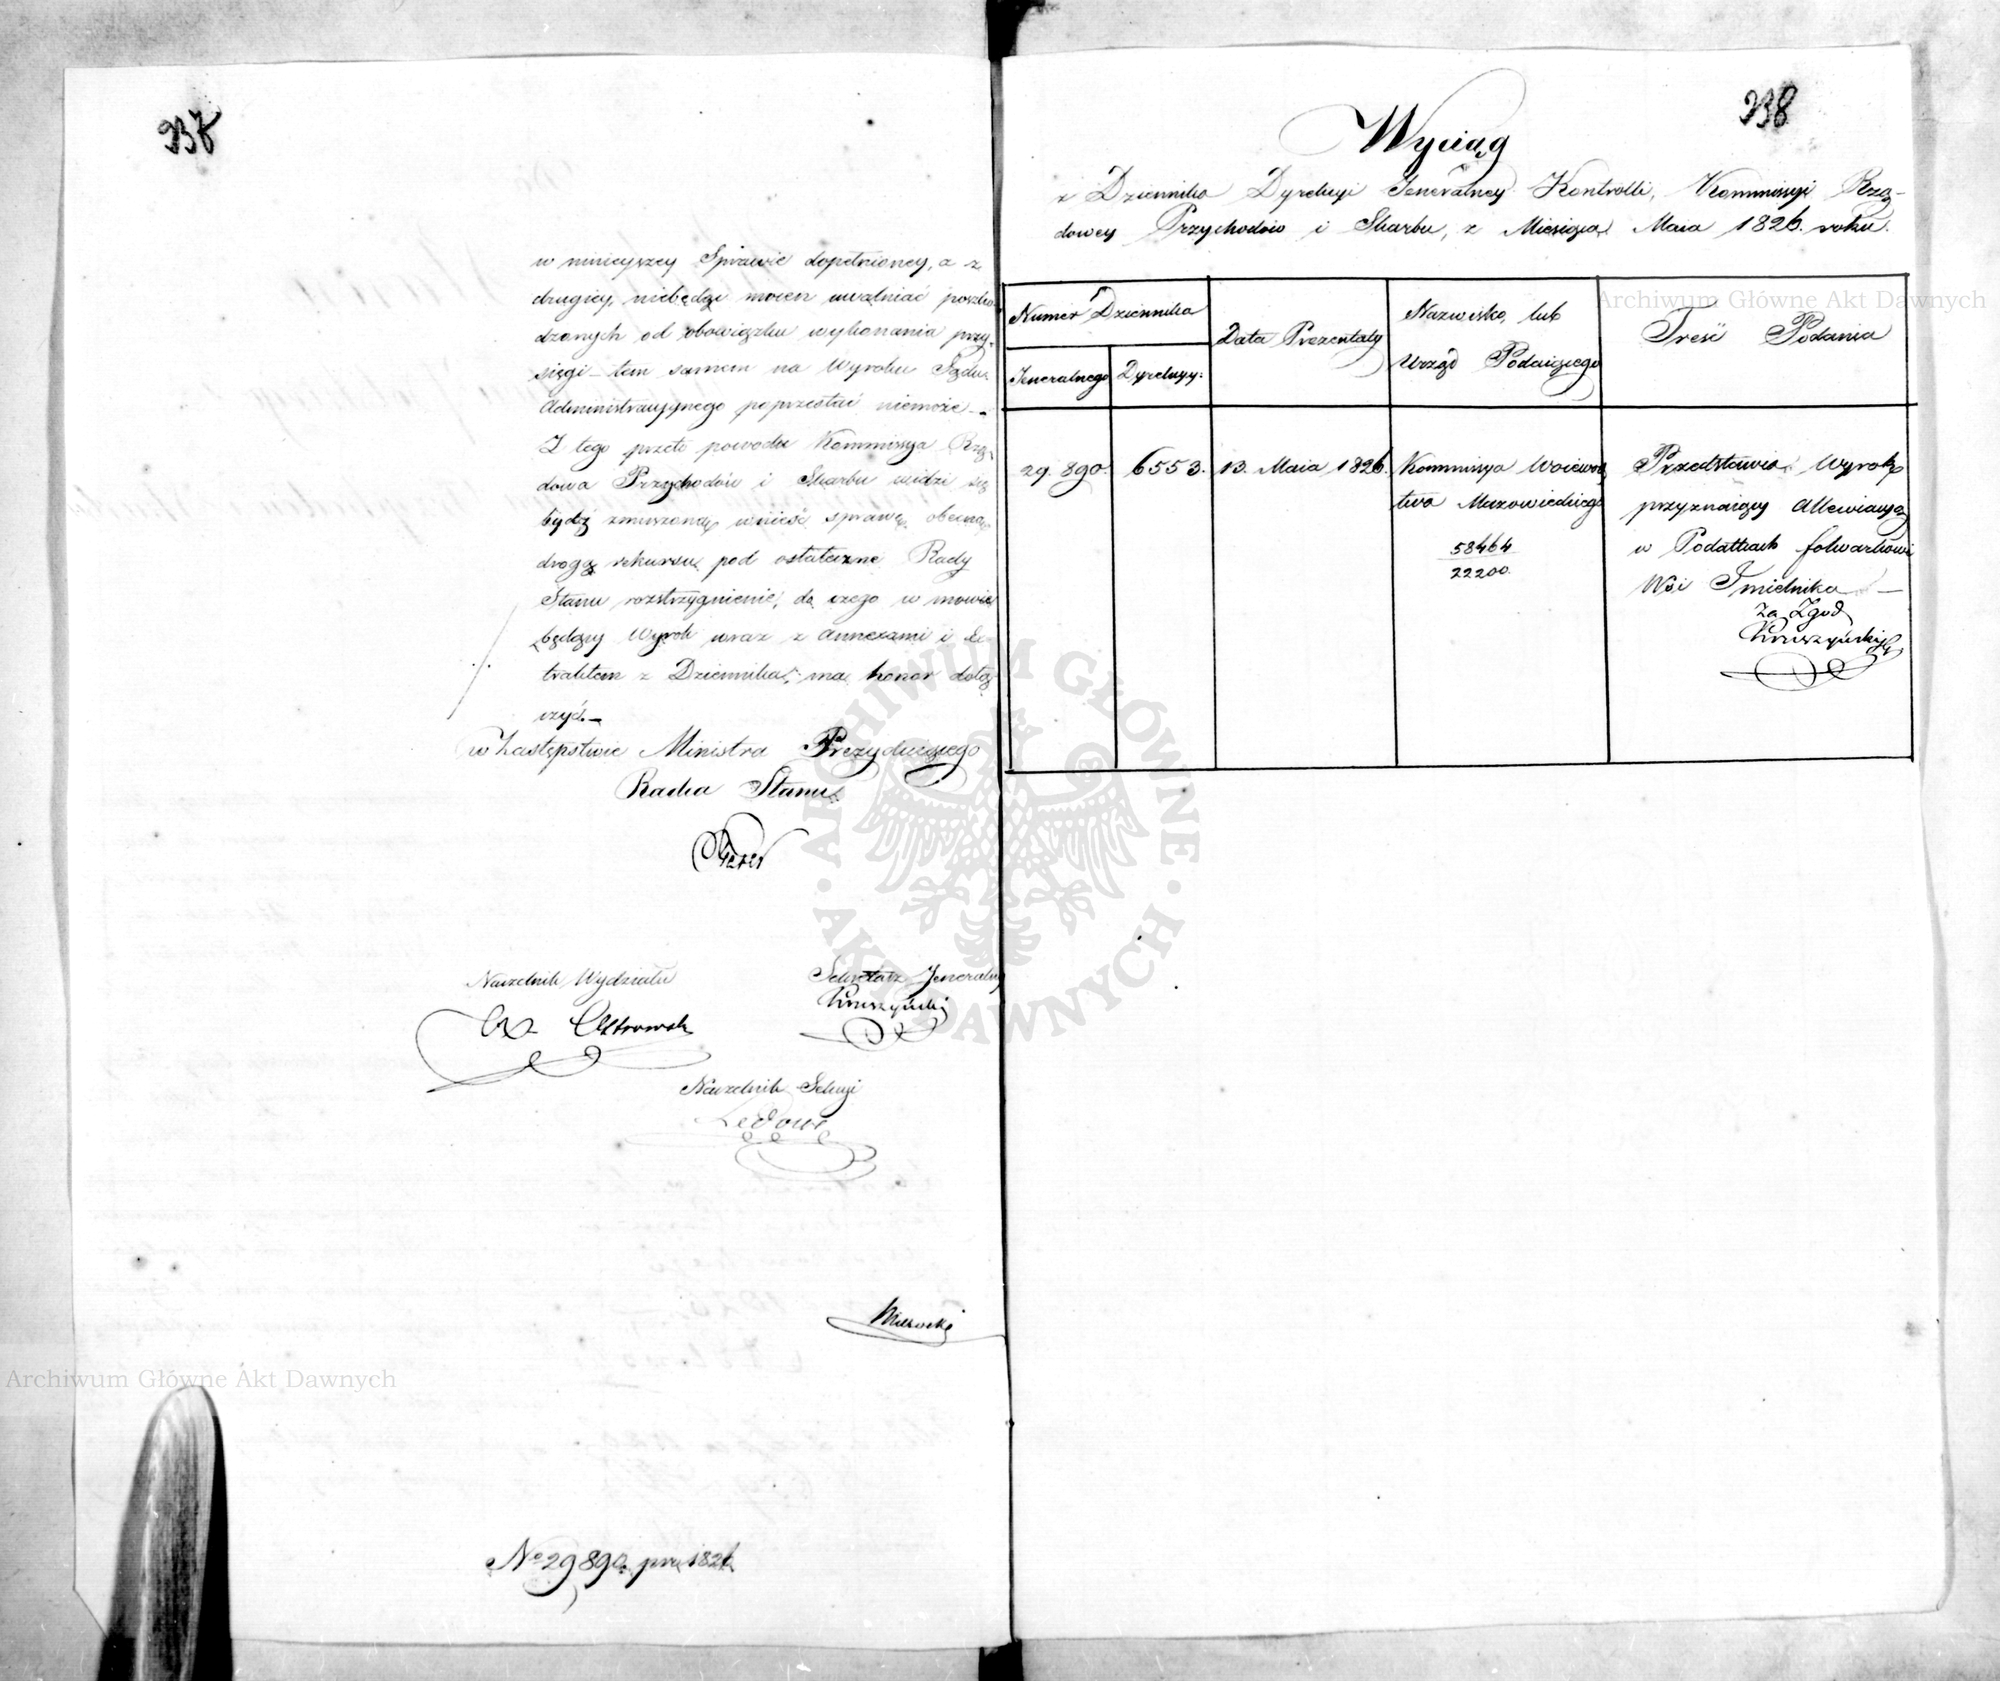 337
w ninieyszey Sprawie dopełnioney, a z
drugiey, niebędąc mocen uwalniać poszko
dzonych od obowiązku wykonania przy-
sięgi – tem samem na Wyroku Sądu
Administracyjnego poprzestać niemoże –
Z tego przeto powodu Kommissya Rzą-
dowa Przychodów i Skarbu widzi się
bydź zmuszoną wnieść sprawę obecną
drogą rekursu pod ostateczne Rady
Stanu rozstrzygnienie, do czego w mowie
będący Wyrok wraz z Annexami i Ex
traktem z Dziennika, ma honor dołą
czyć. –
w Zastępstwie Ministra Prezyduiącego
Radca Stanu
Naczelnik Wydziału
Sekretarz Jeneralny
Kruszyński
Ostrowski
Naczelnik Sekcyi
No 29890 pra 1826
338
Wyciąg
z Dziennika Dyrekcyi Jeneralney Kontrolli, Kommissyi Rzą-
dowey Przychodów i Skarbu, z Miesiąca Maia 1826. roku.
Numer Dziennika
Jeneralnego
Dyrekcyi:
Data Prezentaty
Nazwisko, lub
Urząd Podaiącego
Treść Podania
29.890.
6553.
13. Maia 1826.
Kommissya Woiewodz
twa Mazowieckiego
58464
22200.
Przedstawia Wyrok
przyznaiący Allewiacyą
w Podatkach folwarkowi
Wsi Imielnika –
Za Zgod
Kruszyński
Archiwum Główne Akt Dawnych
Archiwum Główne Akt Dawnych
ARCHIWUM GŁÓWNE AKT DAWNYCH